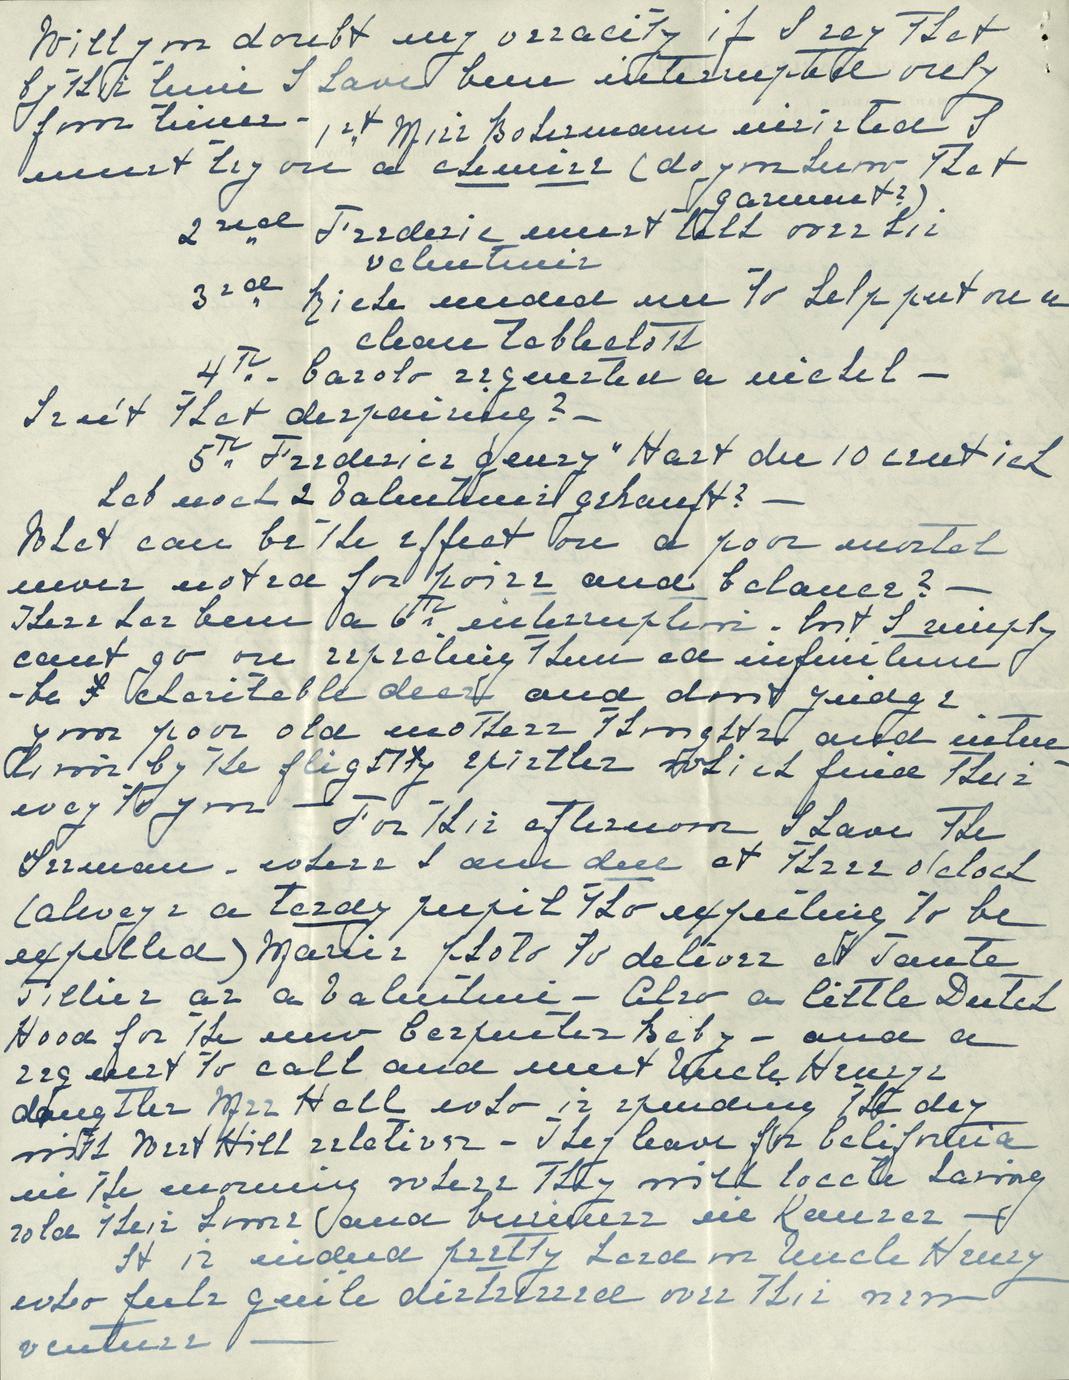 Will you doubt my veracity if I say that
by this time I have been interrupted only
four times - 1st Miss Bohermann insisted I
must try on a chemise (do you know that
garment?)
2nd Frederic must tell over his
valentines
3rd Rieke needed me to help put on a
clean tablecloth
4th - Carolo requested a nickel -
Isn't that despairing? -
5th Frederics query "Hast du 10 cent ich
hab noch 2 Valentines gekauft? -
What can be the effect on a poor mortal
never noted for poise and balance? -
There has been a 6th interruption - but I simply
cant go on repeating them ad infinitum
- be charitable dear and dont judge
your poor old mothers thoughts and inten
tions by the flighty epistles which find their
way to you - For this afternoon I have the
German - where I am due at three o'clock
(always a tardy pupil tho expecting to be
expelled) Maries photo to deliver at Tante
Tillies as a Valentine - Also a little Dutch
Hood for the new Carpenter Baby - and a
request to call and meet Uncle Henrys
daughter Mrs Hall who is spending the day
with West Hill relatives - They leave for California
in the morning where they will locate having
sold their home and business in Kansas -
It is indeed pretty hard on Uncle Henry
who feels quite distressed over this new
venture -